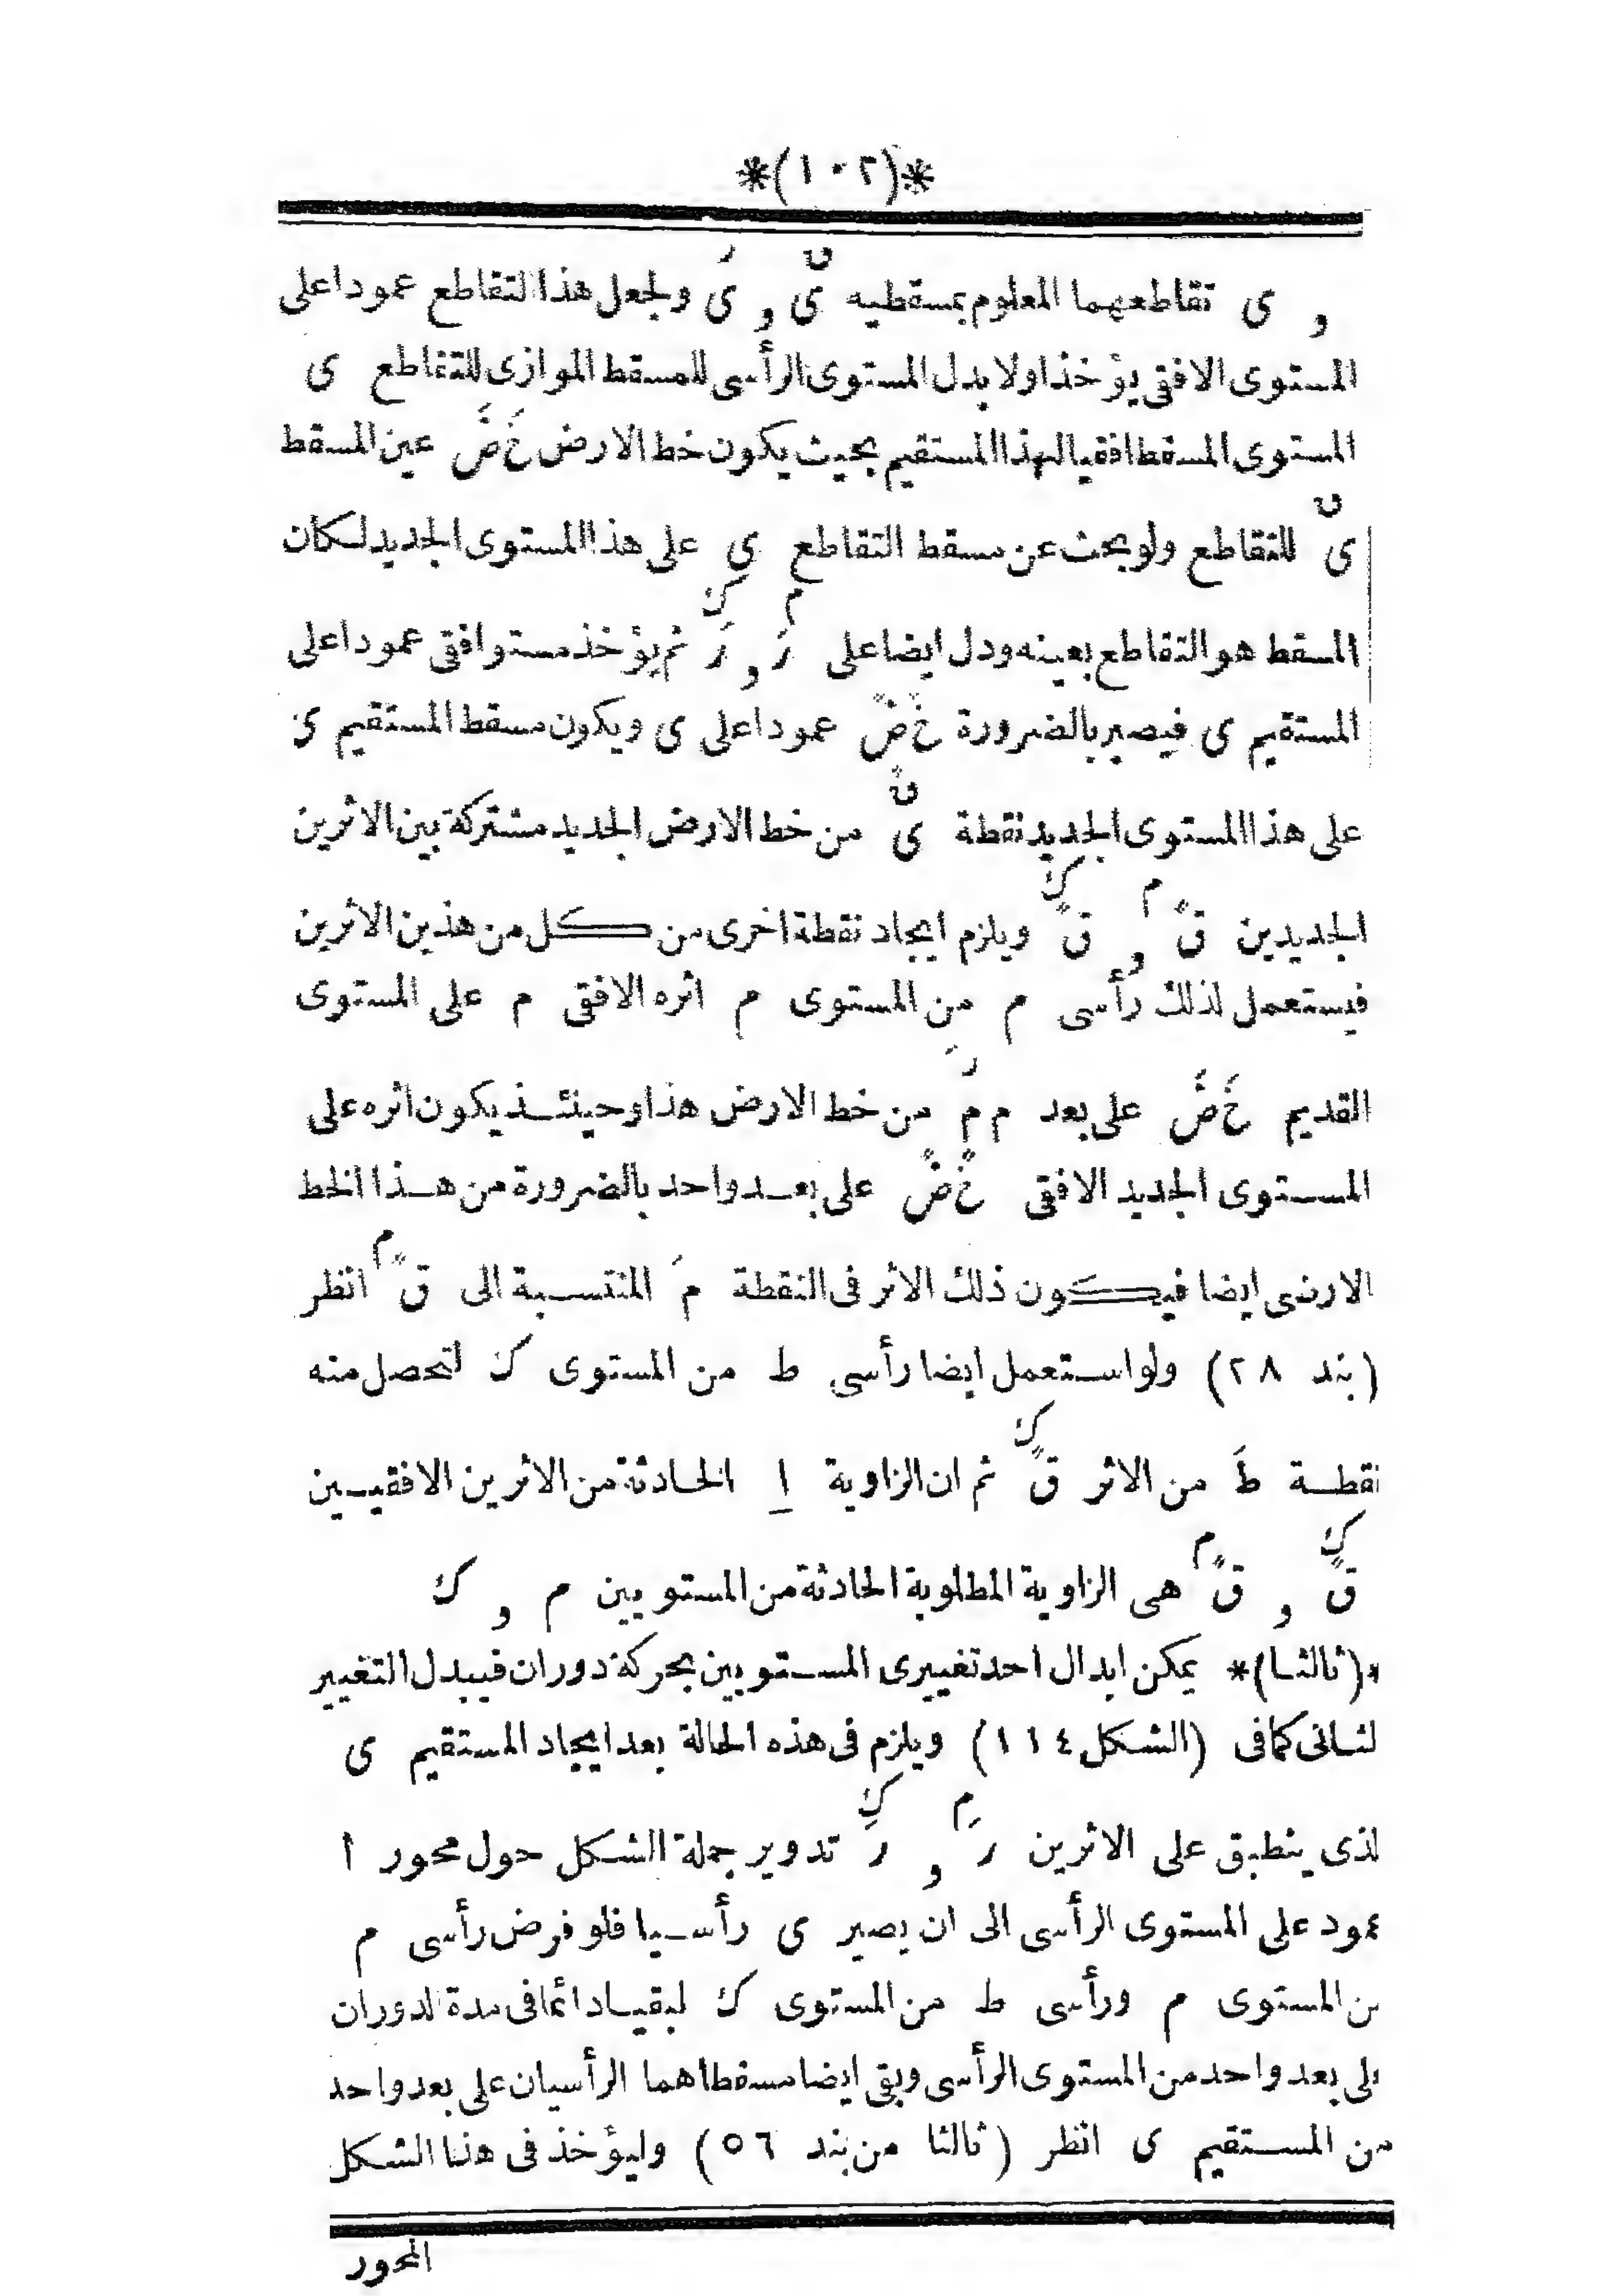 *(١٠٢)*
و ى تقاطعهما المعلوم بمسقطيه ىَ و ىَ ولجعل هذا التقاطع عمودا على
المستوى الافقى يؤخذ اولا بدل المستوى الرأسى للمسقط الموازى للتقاطع ى
المستوى المسقط افقيا لهذا المستقيم بحيث يكون خط الارض خَ ضَ عين المسقط
ىَ للتقاطع ولو بحث عن مسقط التقاطع ى على هذا المستوى الجديد لكان
المسقط هو التقاطع بعينه ودل ايضا على رَم و رَك ثم يؤخذ مستو افقى عمودا على
المستقيم ى فيصير بالضرورة خً ضً عمودا على ى ويكون مسقط المستقيم ى
على هذا المستوى الجديد نقطة ىً من خط الارض الجديد مشتركة بين الاثرين
الجديدين قًم و قًك ويلزم ايجاد نقطة اخرى من كل من هذين الاثرين
فيستعمل لذلك رأسى م من المستوى م اثره الافقى م على المستوى
القديم خَ ضَ على بعد م مَ من خط الارض هذا وحينئذ يكون اثره على
المستوى الجديد الافقى خً ضً على بعد واحد بالضرورة من هذا الخط
الارضى ايضا فيكون ذلك الاثر فى النقطة مَ المنتسبة الى قًم انظر
(بند ٢٨) ولو استعمل ايضا رأسى ط من المستوى ك لتحصل منه
نقطة طَ من الاثر قًك ثم ان الزاوية ا الحادثة من الاثرين الافقيين
قًك و قًم هى الزاوية المطلوبة الحادثة من المستويين م و ك
*(ثالثا)* يمكن ابدال احد تغييرى المستويين بحركة دوران فيبدل التغيير
لثانى كما فى (الشكل ١١٤) ويلزم فى هذه الحالة بعد ايجاد المستقيم ى
لذى ينطبق على الاثرين رَم و رَك تدوير جملة الشكل حول محور ا
عمود على المستوى الرأسى الى ان يصير ى رأسيا فلو فرض رأسى م
من المستوى م ورأسى ط من المستوى ك لبقيا دائما فى مدة الدوران
على بعد واحد من المستوى الرأسى وبقى ايضا مسقطاهما الرأسيان على بعد واحد
من المستقيم ى انظر (ثالثا من بند ٥٦) وليؤخذ فى هذا الشكل
المحور